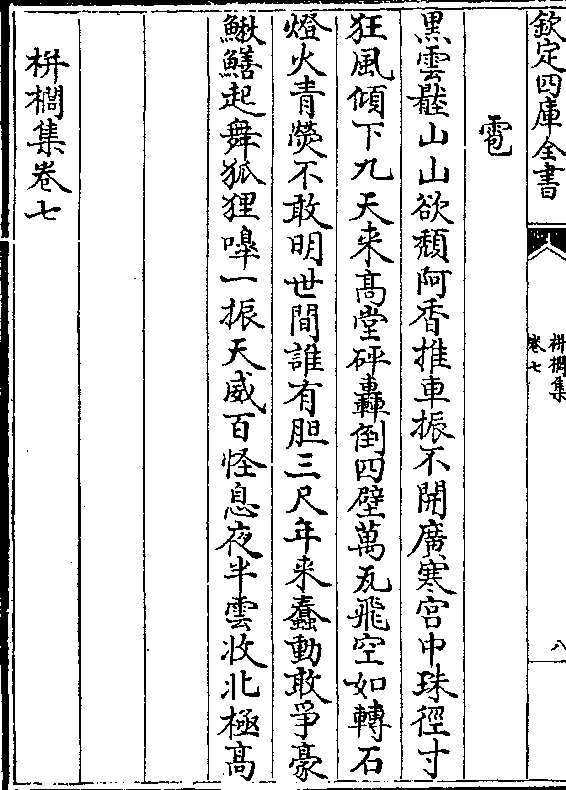 欽定四庫全書
栟櫚集
卷七
八
雹
黒雲𡐓山山欲頽阿香推車振不開廣寒宫中珠徑寸
狂風傾下九天来髙堂砰轟倒四壁萬瓦飛空如轉石
燈火青熒不敢明世間誰有胆三尺年来蠢動敢爭豪
鰍鱔起舞狐狸嘷一振天威百怪息夜半雲收北極髙
栟櫚集卷七